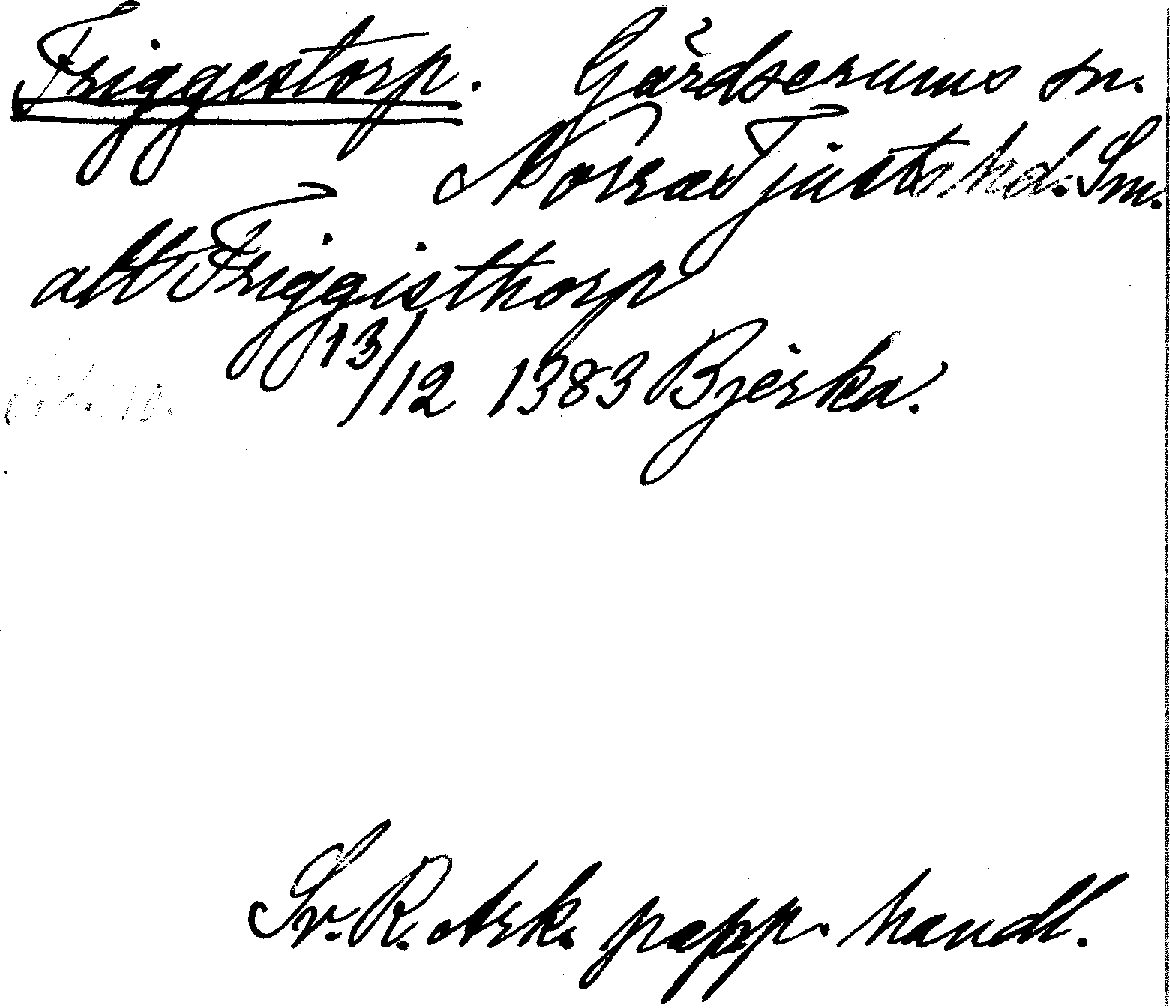 Friggestorp. Gärdserums sn.
Norra Tjusts hd. Sm.
allt Friggisthorp
13/12 1383 Bjerka.
Sv. R. Ark. papp. handl.